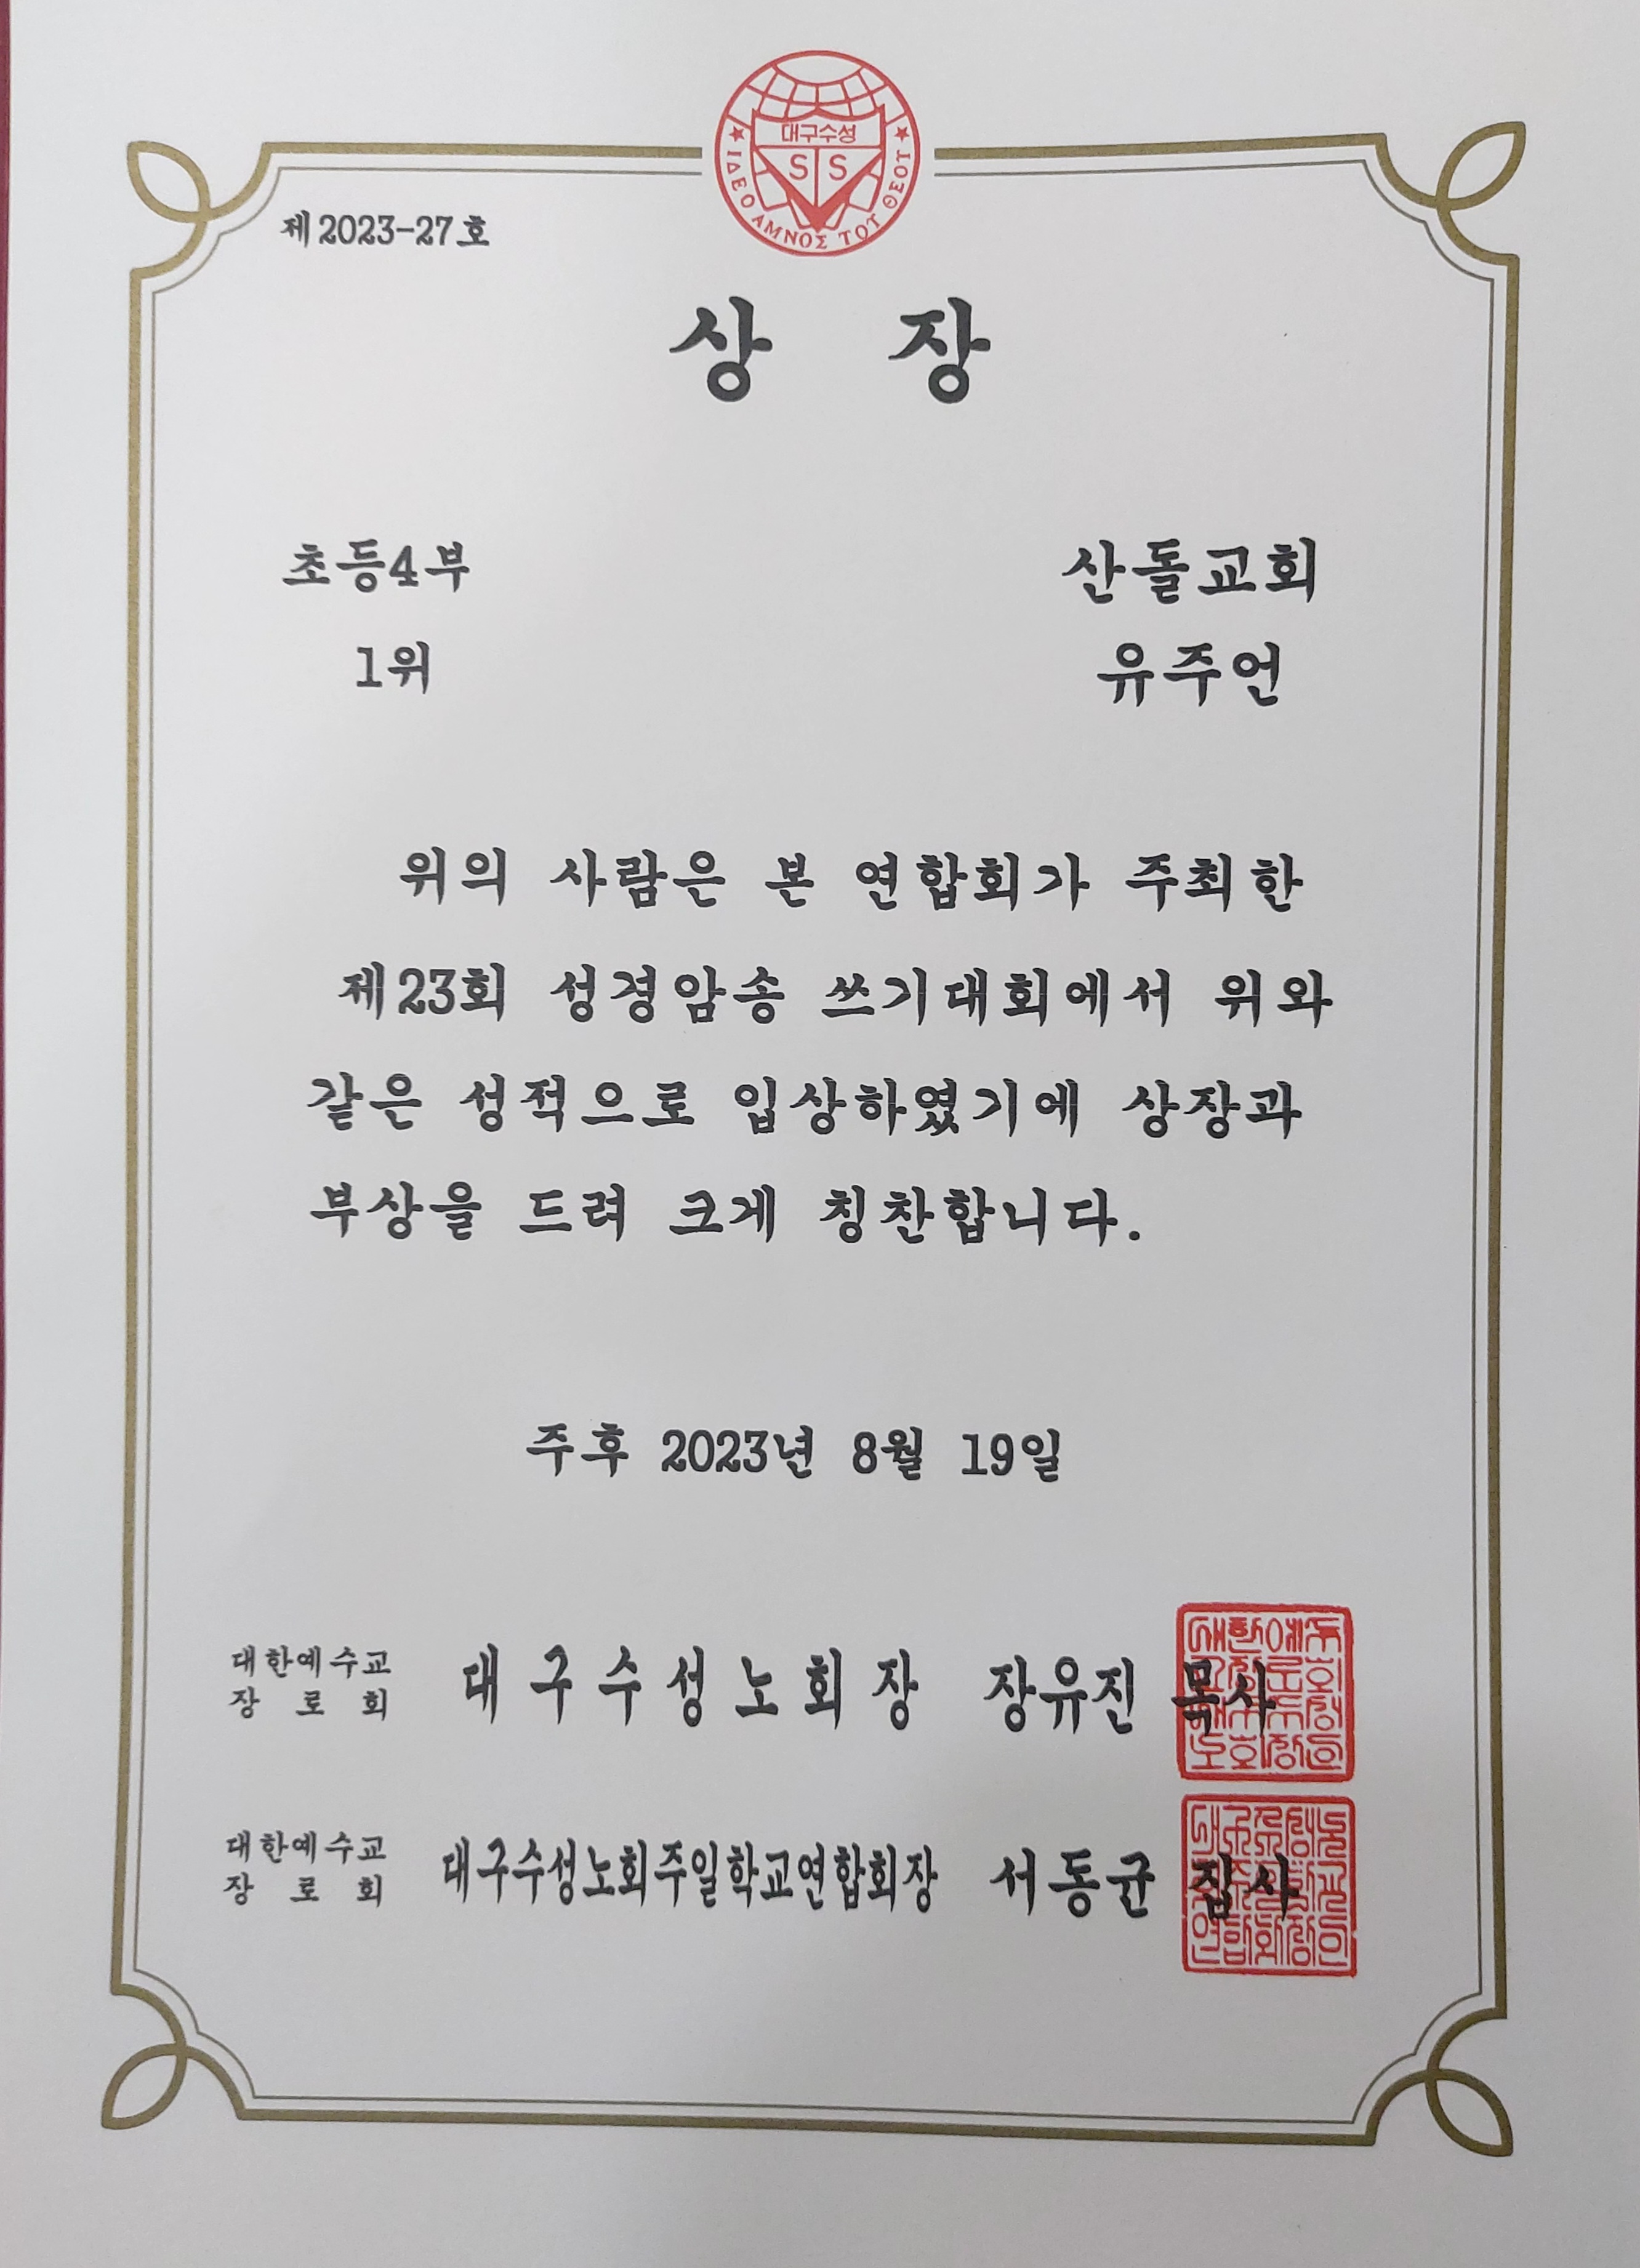 대구수성
S S
ΙΔΕ Ο ΑΜΝΟΣ ΤΟΥ ΘΕΟΥ
제2023-27호
상 장
초등4부 산돌교회
1위 유주언
위의 사람은 본 연합회가 주최한
제23회 성경암송 쓰기대회에서 위와
같은 성적으로 입상하였기에 상장과
부상을 드려 크게 칭찬합니다.
주후 2023년 8월 19일
대한예수교
장로회 대구수성노회장 장유진 목사
대한예수교
장로회 대구수성노회주일학교연합회장 서동균 집사